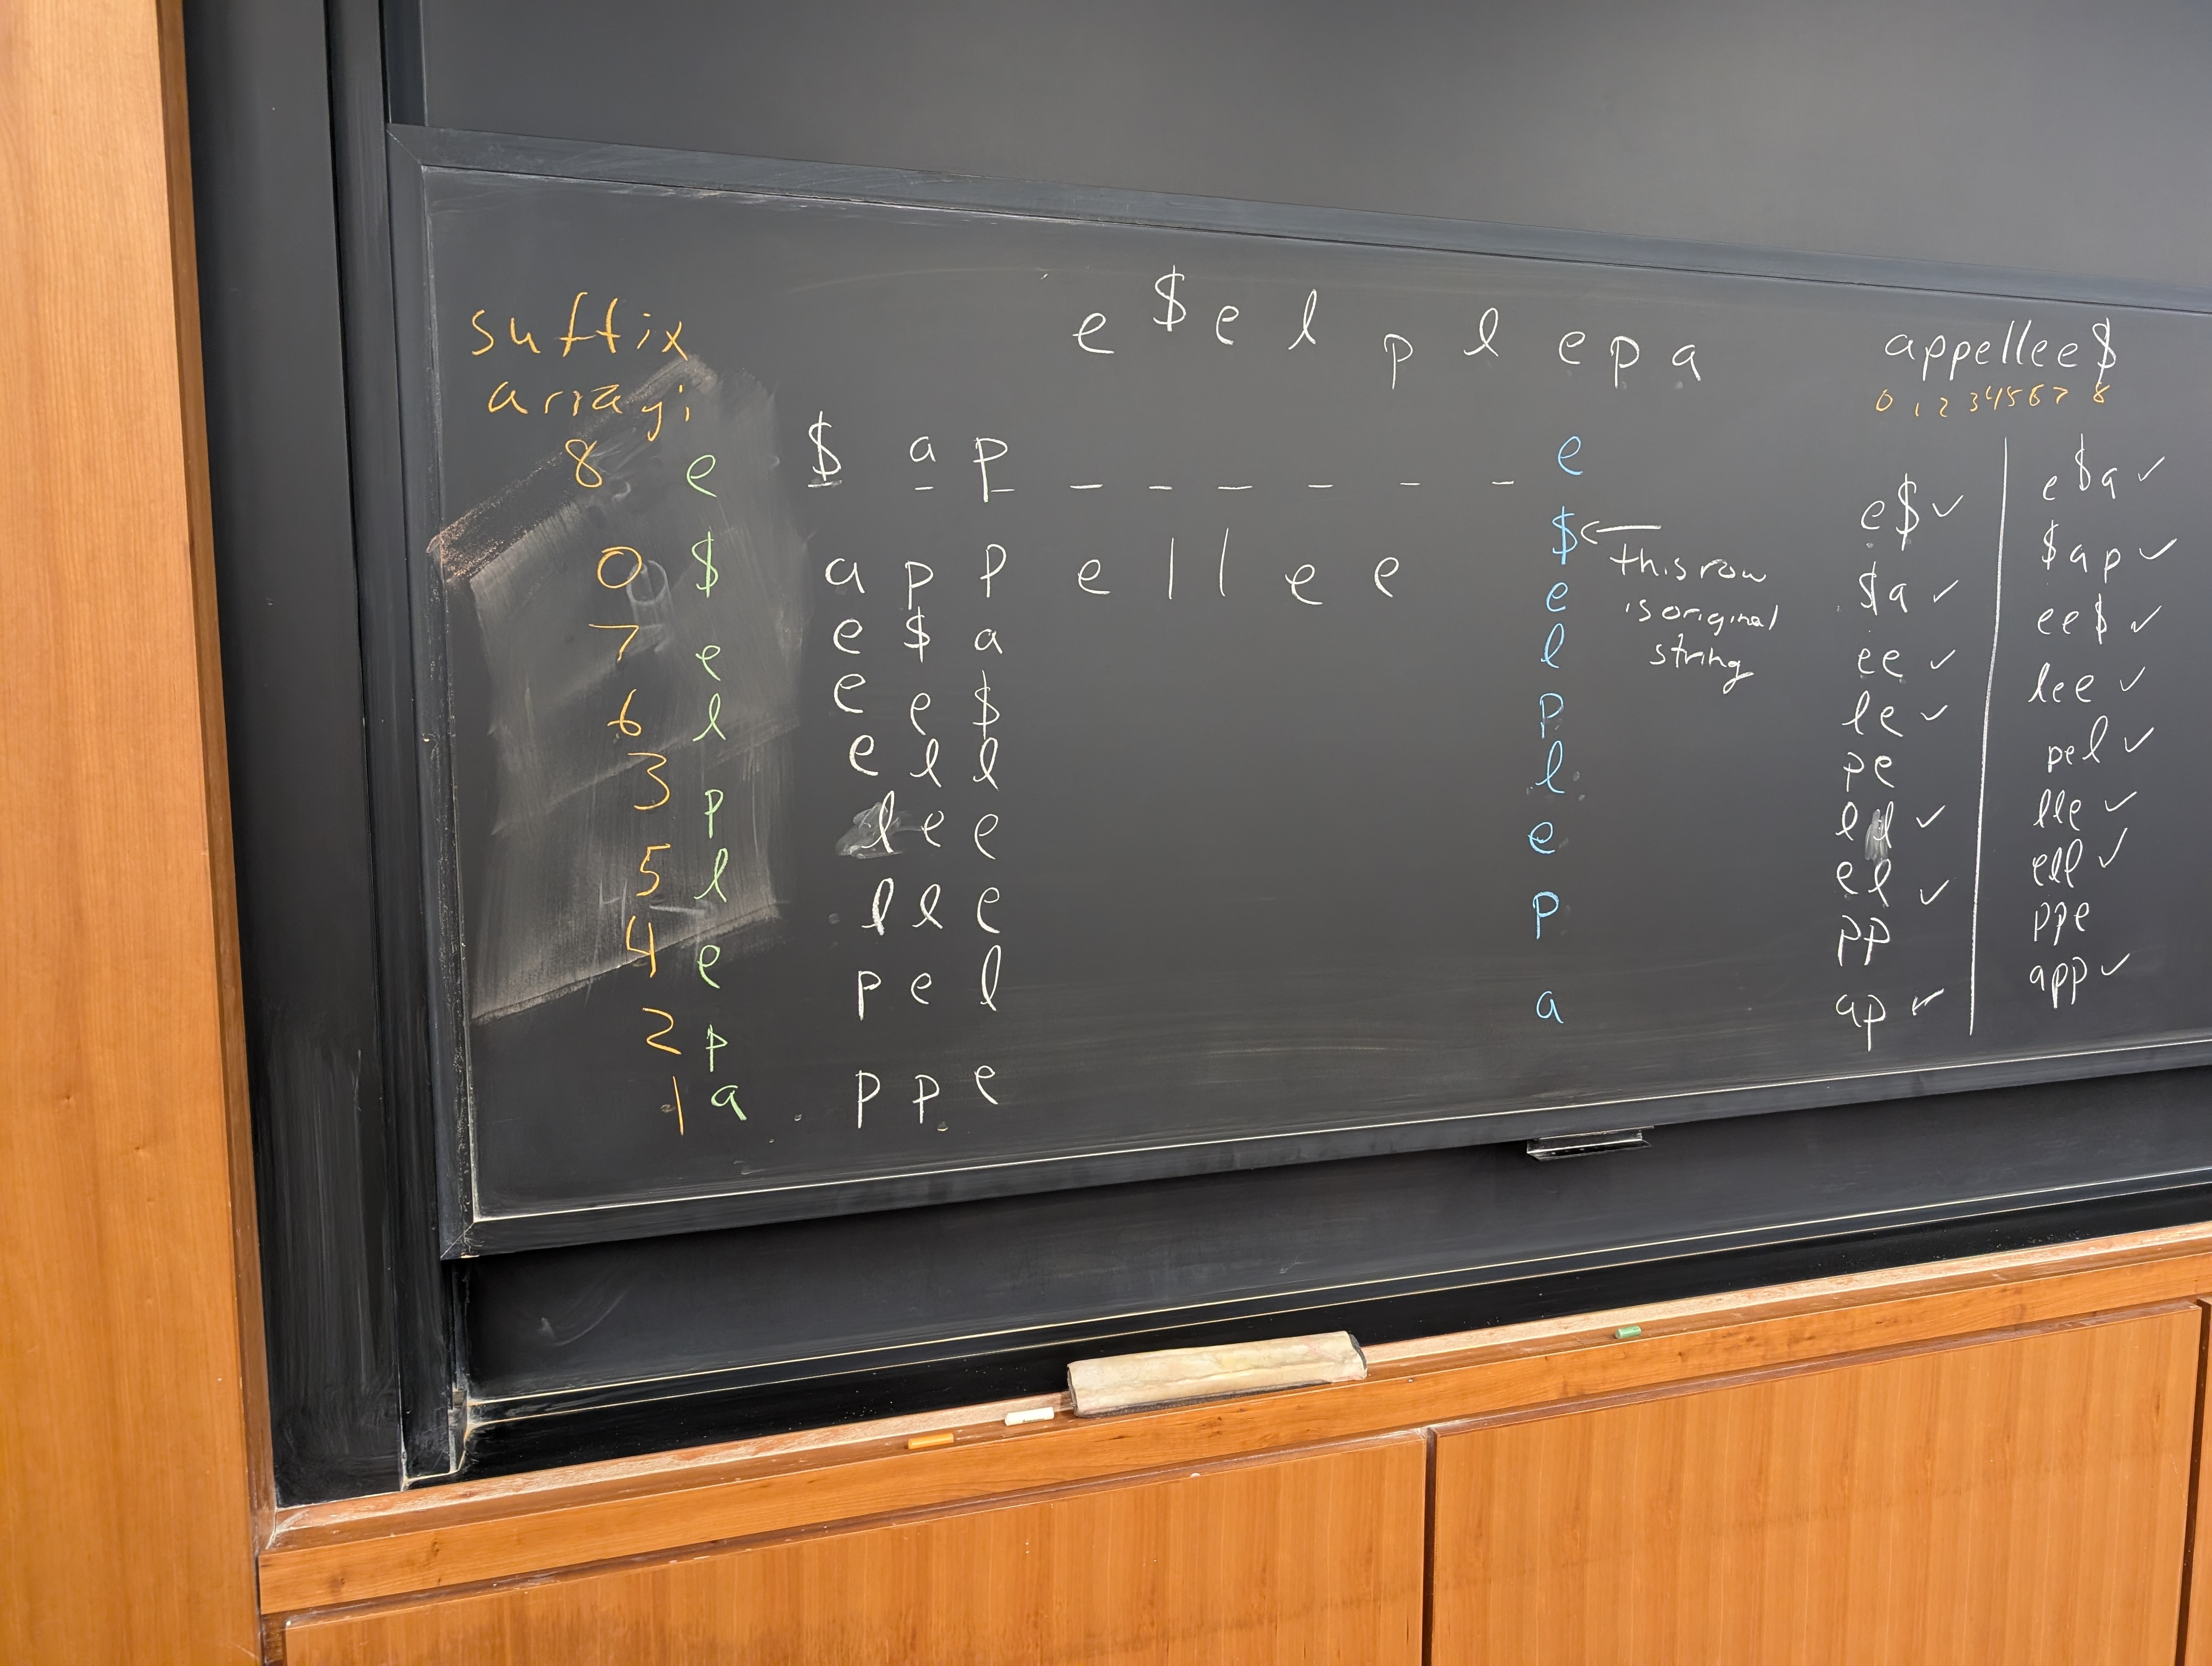 e $ e l p l e p a
suffix
array:
8 e $ a p _ _ _ _ _ _ e
0 $ a p p e l l e e $ ←
7 e e $ a e
6 l e e $ l
3 p e l l p
5 l l e e l
4 e l l e e
2 p p e l p
1 a p p e a
this row
is original
string
appellee$
0 1 2 3 4 5 6 7 8
e$ ✓
$a ✓
ee ✓
le ✓
pe
ll ✓
el ✓
pp
ap ✓
e$a ✓
$ap ✓
ee$ ✓
lee ✓
pel ✓
lle ✓
ell ✓
ppe
app ✓